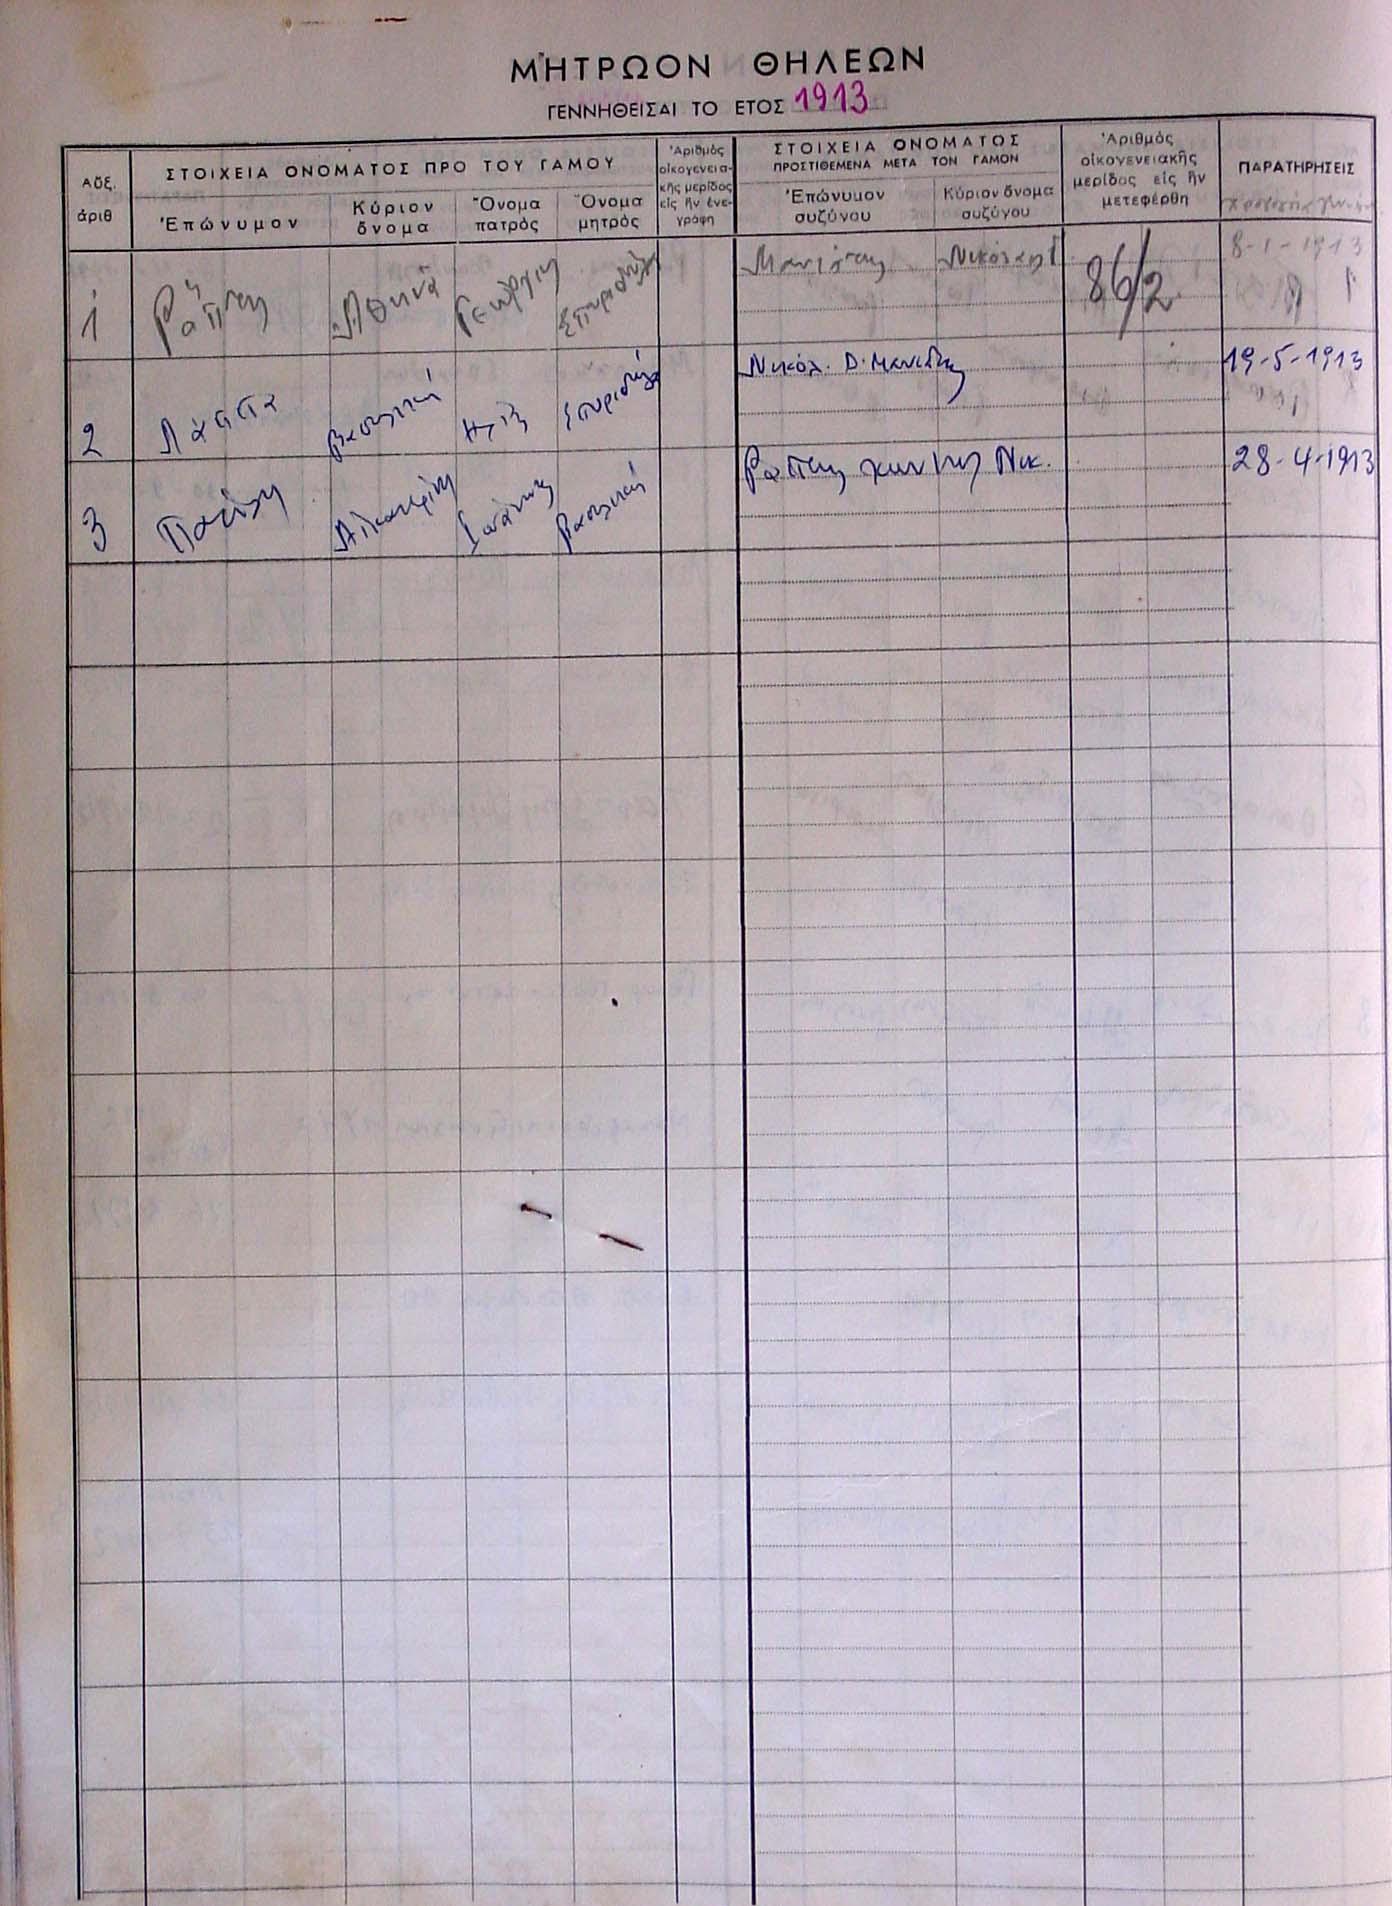 ΜΗΤΡΩΟΝ ΘΗΛΕΩΝ
ΓΕΝΝΗΘΕΙΣΑΙ ΤΟ ΕΤΟΣ 1913
Αὔξ. ἀριθ
ΣΤΟΙΧΕΙΑ ΟΝΟΜΑΤΟΣ ΠΡΟ ΤΟΥ ΓΑΜΟΥ
Ἐπώνυμον
Κύριον ὄνομα
Ὄνομα πατρὸς
Ὄνομα μητρὸς
Ἀριθμὸς οἰκογενεια-
κῆς μερίδος
εἰς ἣν ἐνε-
γράφη
ΣΤΟΙΧΕΙΑ ΟΝΟΜΑΤΟΣ
ΠΡΟΣΤΙΘΕΜΕΝΑ ΜΕΤΑ ΤΟΝ ΓΑΜΟΝ
Ἐπώνυμον συζύγου
Κύριον ὄνομα συζύγου
Ἀριθμὸς
οἰκογενειακῆς
μερίδος εἰς ἣν
μετεφέρθη
ΠΑΡΑΤΗΡΗΣΕΙΣ
1 Ράπτη Ἀθηνᾶ Γεώργιος Σπυριδούλα Νικόλαος 86/2 8-1-1913
2 Λάππα Βασιλική Ηλίας Σπυριδούλα Νικόλ. Δ. 19-5-1913
3 Αἰκατερίνη Ἰωάννης Βασιλική Ράπτης Νικ. 28-4-1913